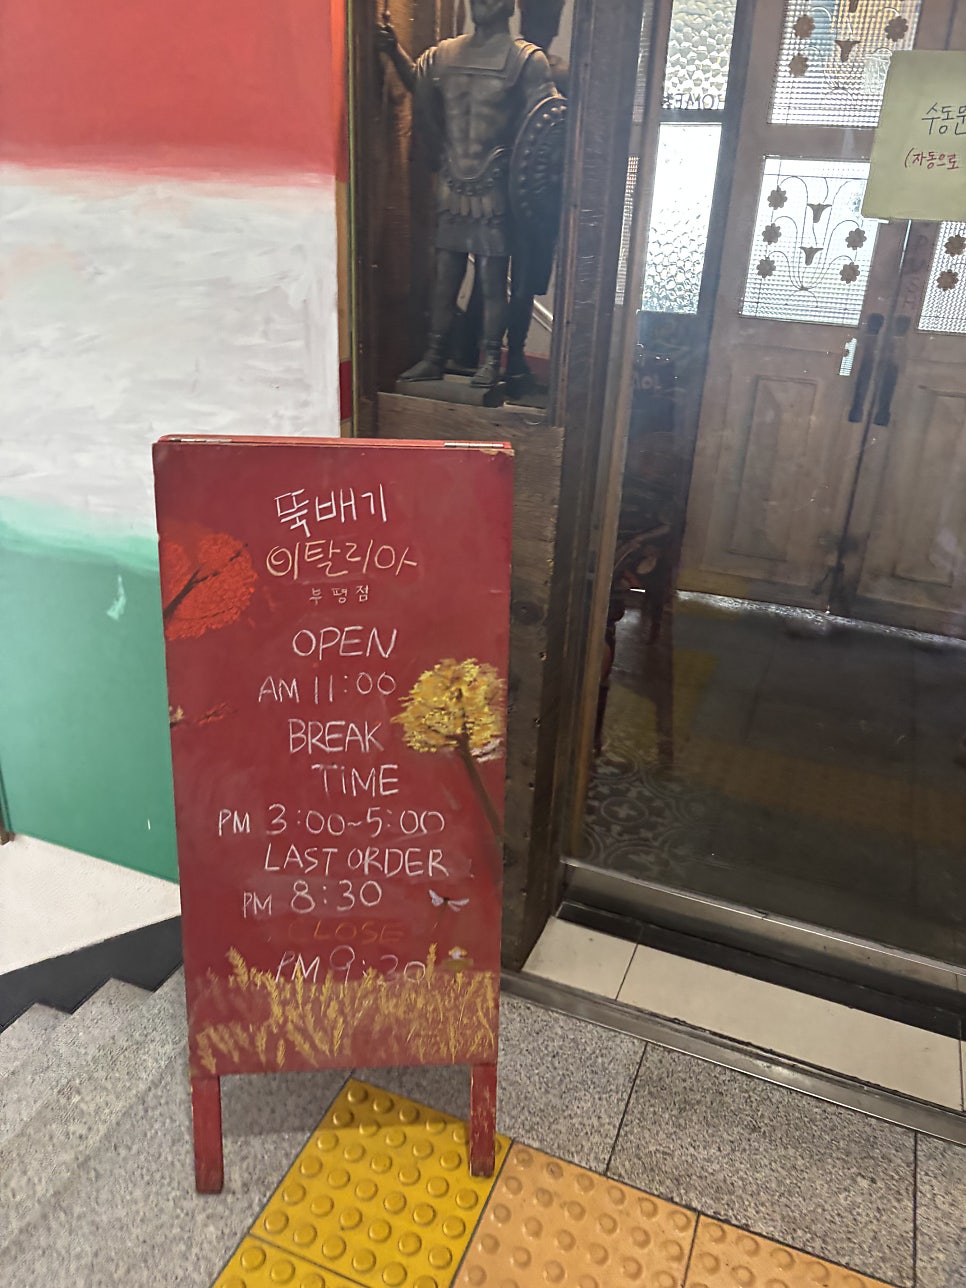 뚝배기
이탈리아
부평점
OPEN
AM 11:00
BREAK
TIME
PM 3:00~5:00
LAST ORDER
PM 8:30
CLOSE
PM 9:30
수동문
(자동으로